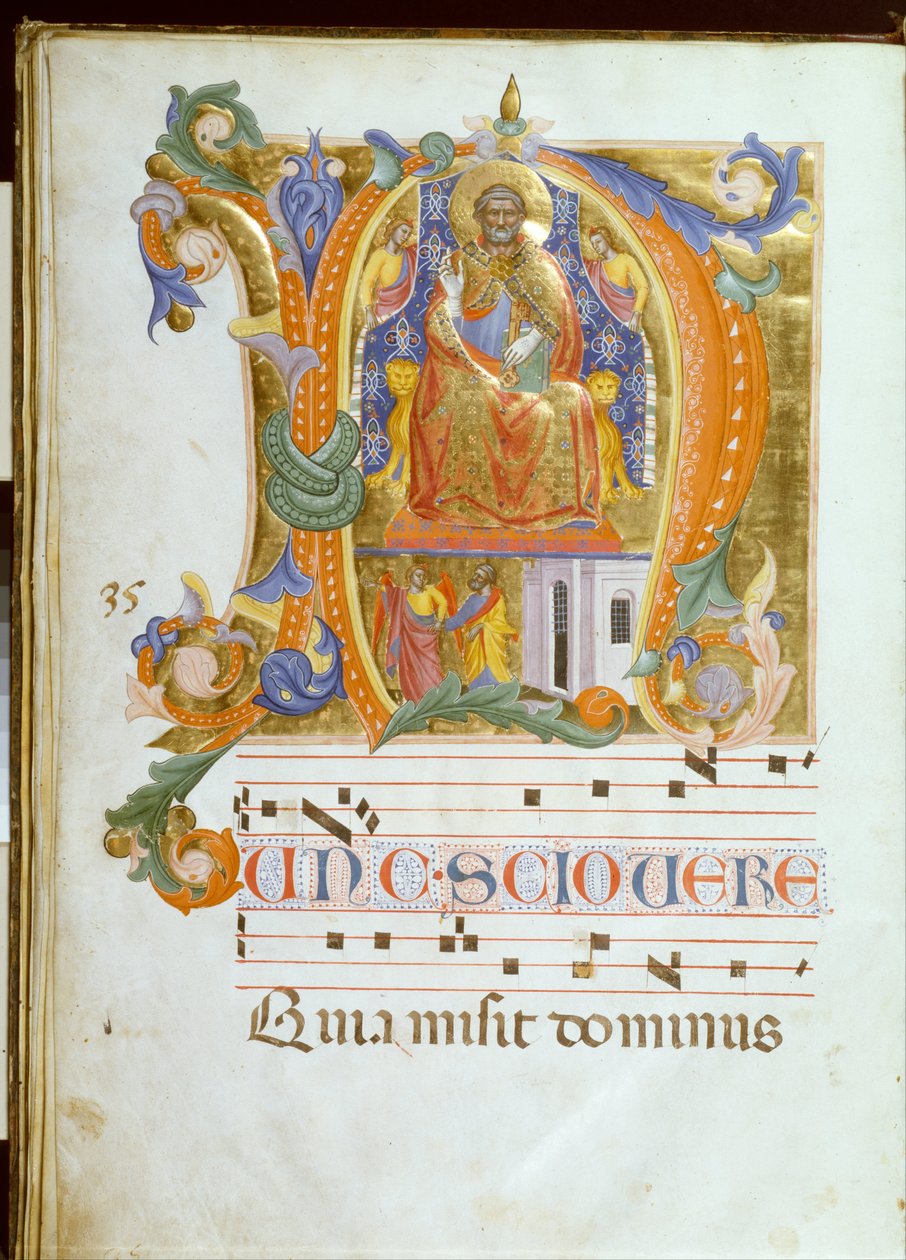 N
35
UNC·SCIO VERE
Quia misit dominus